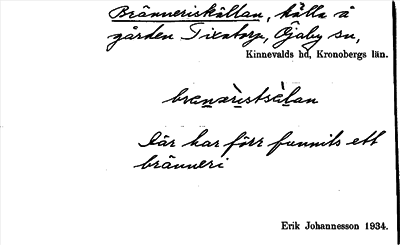 Bränneriskällan, källa å
gården Tixatorp, Öjaby sn,
Kinnevalds hd, Kronobergs län.
Där har förr funnits ett
bränneri
Erik Johannesson 1934.